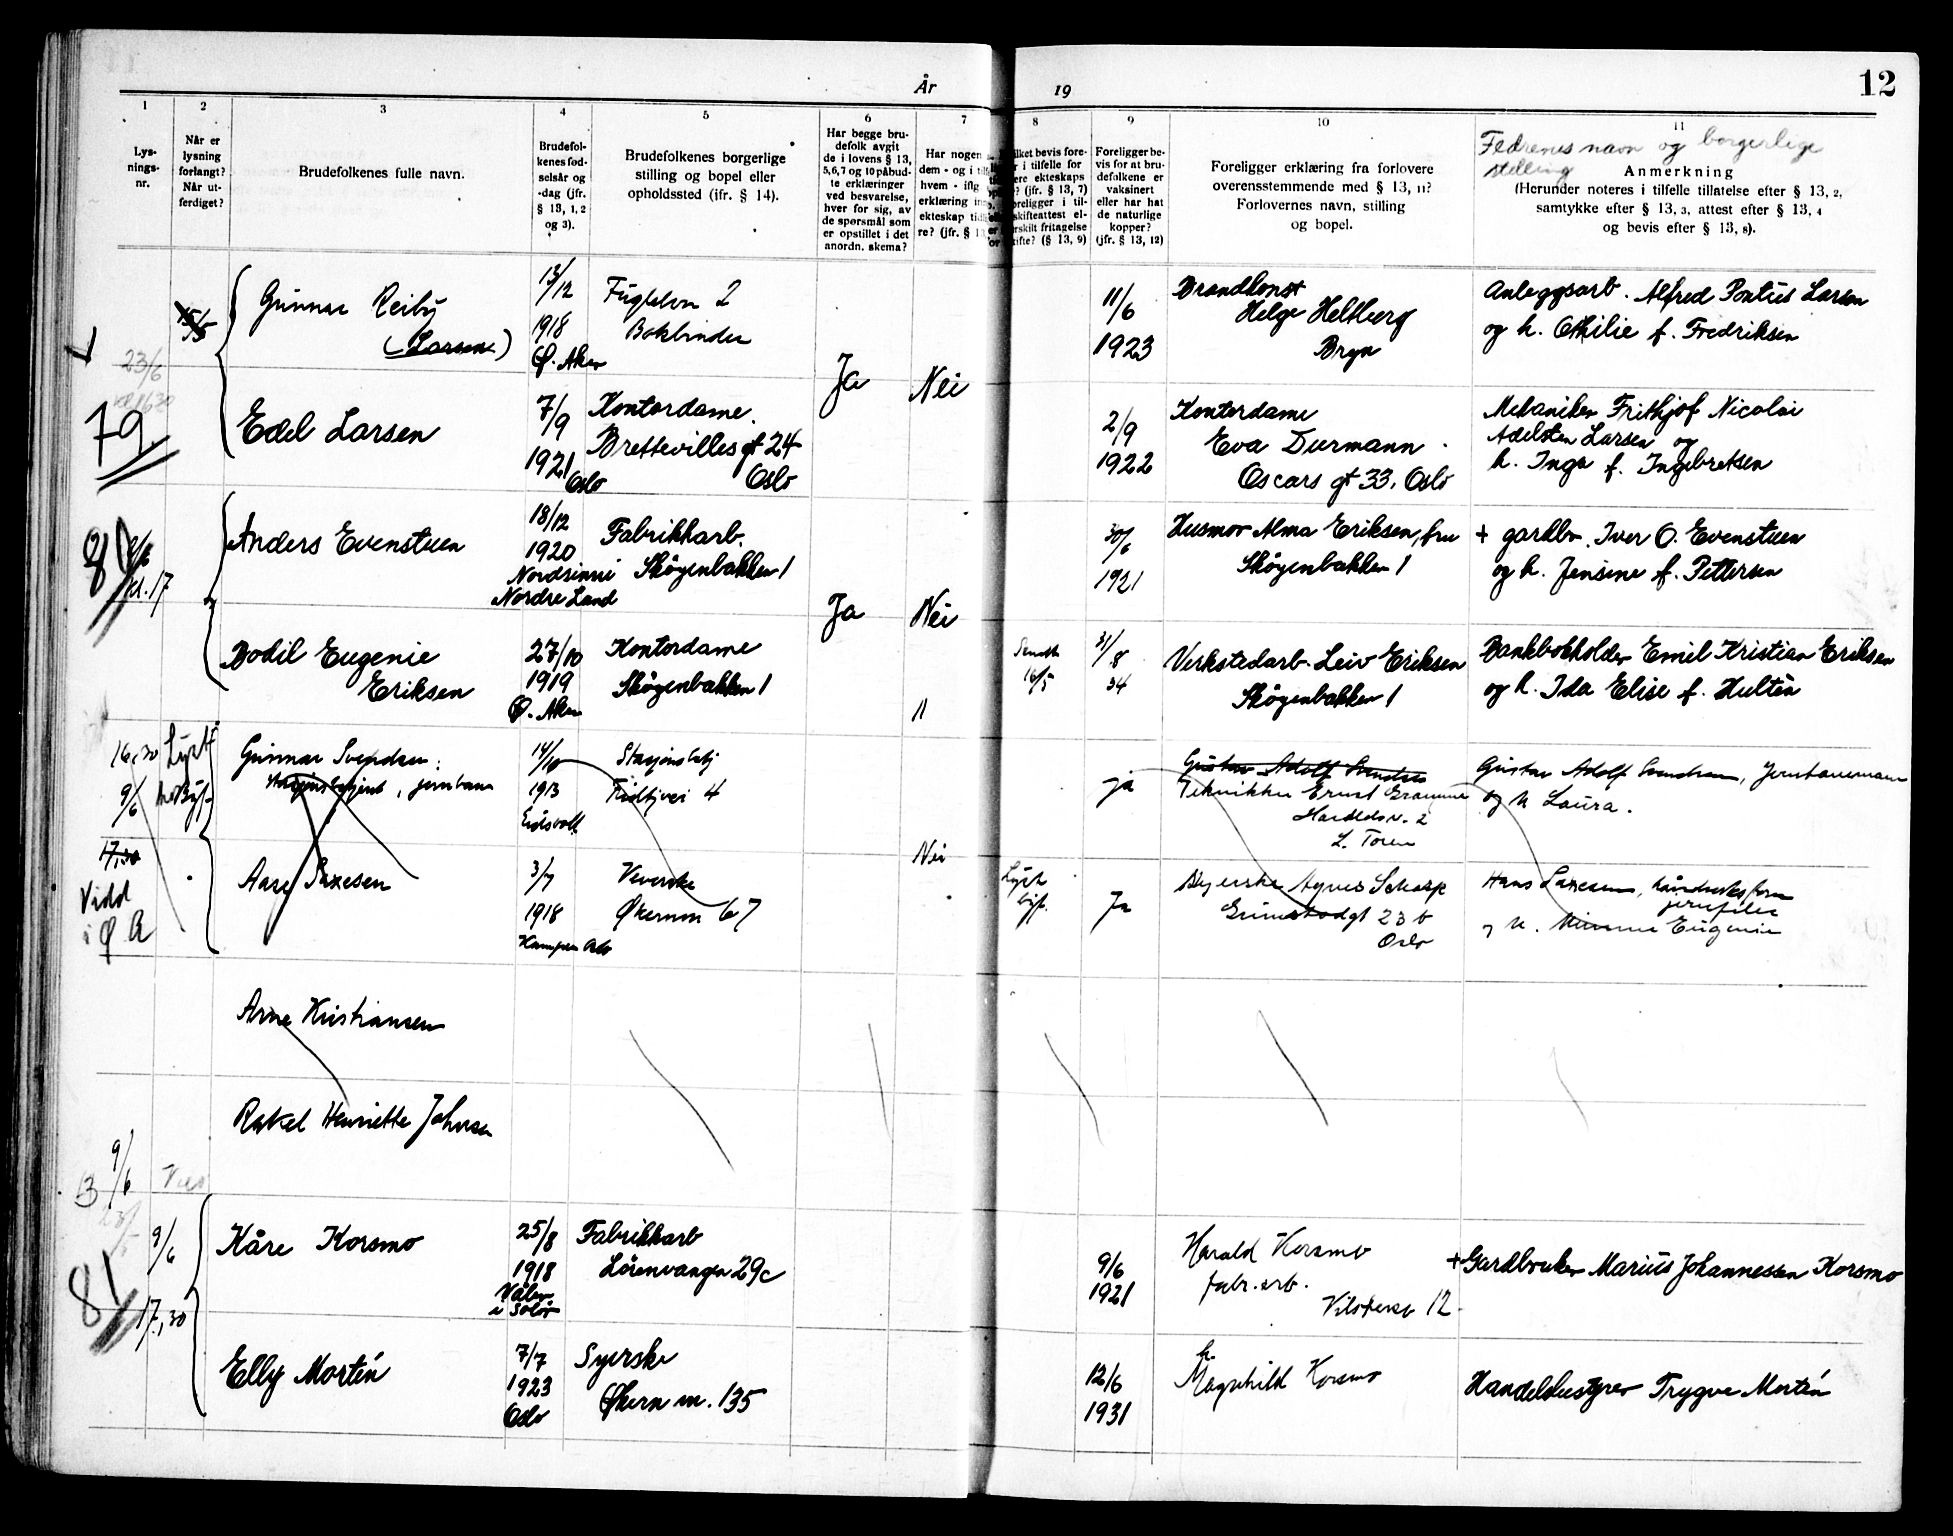 År 19
12
1
Lys-
nings-
nr.
2
Når er
lysning
forlangt?
Når ut-
ferdiget?
3
Brudefolkenes fulle navn.
4
Brudefol-
kenes fød-
selsår og
-dag (jfr.
§ 13, 1, 2
og 3).
5
Brudefolkenes borgerlige
stilling og bopel eller
opholdssted (ifr. § 14).
6
Har begge bru-
defolk avgit
de i lovens § 13,
5,6,7 og 10 påbud-
te erklæringer
ved besvarelse,
hver for sig, av
de spørsmål som
er opstillet i det
anordn. skema?
7
Har nogen
dem - og i
hvem - iflg
erklæring
ekteskap
re? (jfr. § 1
8
ilket bevis fore-
r i tilfelle for
ere ekteskaps
? (jfr. § 13, 7)
oreligger i til-
skifteattest el-
rskilt fritagelse
ifte? (§ 13, 9)
9
Foreligger be-
vis for at bru-
defolkene er
vaksinert
eller har hat
de naturlige
kopper?
(jfr. § 13, 12)
10
Foreligger erklæring fra forlovere
overensstemmende med § 13, 11?
Forlovernes navn, stilling
og bopel.
11
Fedrenes navn og borgerlige
stilling
Anmerkning
(Herunder noteres i tilfelle tillatelse efter § 13, 2,
samtykke efter § 13, 3, attest efter § 13, 4
og bevis efter § 13, 8).
15/5
Gunnar Reiby
(Larsen)
13/12
1918
Ø. Aker
Fuglelvn 2
Bokbinder
11/6
1923
Brandkonst
Helge Heltberg
Bryn
Anleggsarb. Alfred Pontius Larsen
og h. Othilie f. Fredriksen
23/6
79
Ja
Nei
Edel Larsen
7/9
1921
Oslo
Kontordame.
Brettevilles gt 24
Oslo
2/9
1922
Kontordame
Eva Durmann
Oscars gt 33. Oslo
Mekaniker Frithjof Nicolai
Adelsten Larsen og
h. Inga f. Ingebretsen
80
kl. 17
Anders Evenstuen
18/12
1920
Nordsinni
Nordre Land
Fabrikkarb.
Skøyenbakken 1
30/6
1921
Husmor Alma Eriksen, fru
Skøyenbakken 1
+ gardbr. Iver O. Evenstuen
og h. Jensine f. Pettersen
Ja
Nei
Bodil Eugenie
Eriksen
27/10
1919
Ø. Aker
Kontordame
Skøyenbakken 1
"
16/5
31/8
34
Verkstedarb. Leiv Eriksen
Skøyenbakken 1
Bankbokholder Emil Kristian Eriksen
og h. Ida Elise f. Hultén
16,30
9/6
17,30
Vidd
i Ø A
Lyst
Gunnar Svendsen
14/10
1913
Eidsvoll
Stasjonsbetj
4
ja
Gustav Adolf Svendsen
Tekniker Ernst Gramme
L. Toren
Gustav Adolf Svendsen, Jernbanemann
og h Laura.
Nei
Aase Saxesen
3/7
1918
Kampen Oslo
Veverske
Økernvn 67
Lyst
Ja
Syerske Agnes Scharp
Grimstadgt 23 b
Oslo
Hans Saxesen,
og h. Eugenie
Arne Kristiansen
Rakel Henriette Johnsen
9/6
13
81
9/6
17,30
Kåre Korsmo
25/8
1918
Våler
i Solør
Fabrikkarb
Lørenvangen 29c
9/6
1921
Harald Korsmo
fabr. arb.
12
+ Gardbruker Marius Johannessen Korsmo
Elly Mortén
7/7
1923
Oslo
Syerske
Økern vn. 135
12/6
1931
h.
Magnhild Korsmo
Handelsbestyrer Trygve Mortén